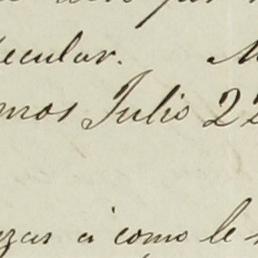 ecular. M
mos Julio 22
zar á como le